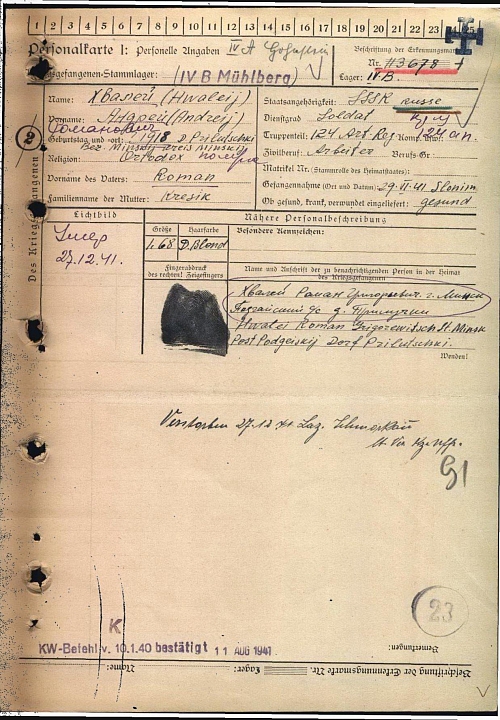 1 2 3 4 5 6 7 8 9 10 11 12 13 14 15 16 17 18 19 20 21 22 23 24 25
Personalkarte I: Personelle Angaben IV A
Beschriftung der Erkennungsmarke
Nr. 113678
Kriegsgefangenen-Stammlager: (IV B Mühlberg)
Lager: IV B.
Des Kriegsgefangenen
Name: Хвалей (Hwaleij)
Vorname: Андрей (Andreij)
Романович
Geburtstag und -ort: 1918 D. Prilutschki
Bez. Minskij
Religion: Ortodox
Vorname des Vaters: Roman
Familienname der Mutter: Kresik
Staatsangehörigkeit: SSSR russe
Dienstgrad Soldat
Truppenteil: 124 Art Reg Komp. usw.: 124 ап.
Zivilberuf: Arbeiter Berufs-Gr.
Matrikel Nr. (Stammrolle des Heimatstaates):
Gefangennahme (Ort und Datum) 29.11.41 Slonim
Ob gesund, krank, verwundet eingeliefert: gesund
Lichtbild
27.12.41.
Nähere Personalbeschreibung
Größe Haarfarbe Besondere Kennzeichen:
1.68 D. Blond
Fingerabdruck
des rechten! Zeigefingers
Name und Anschrift der zu benachrichtigenden Person in der Heimat
des Kriegsgefangenen
Хвалей Роман Григорьевич г. Минск
д. Прилучки
Hwalei Roman Grigorewitsch St. Minsk
Post Podgeiskij Dorf Prilutschki.
Wenden!
Verstorben 27.12.41 Laz.
23
K
KW-Befehl v. 10.1.40 bestätigt 11 AUG 1941
Bemerkungen:
Name:
Lager:
Beschriftung der Erkennungsmarke Nr.